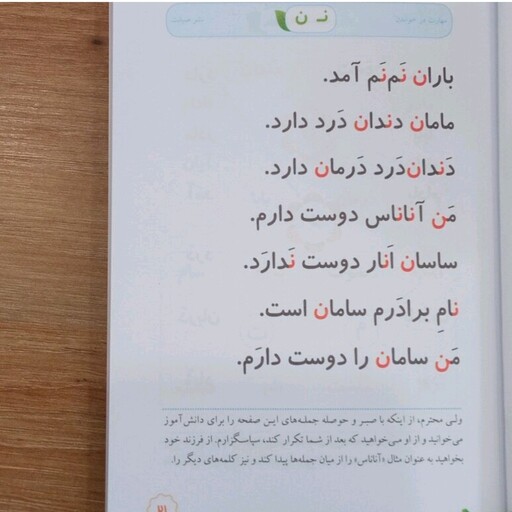 مهارت در خواندن
نـ ن
باران نَم‌نَم آمد.
مامان دندان دَرد دارد.
دَندان‌دَرد دَرمان دارد.
مَن آناناس دوست دارم.
ساسان اَنار دوست نَدارَد.
نامِ برادَرم سامان است.
مَن سامان را دوست دارَم.
ولی محترم، از اینکه با صبر و حوصله جمله‌های این صفحه را برای دانش‌آموز
می‌خوانید و از او می‌خواهید که بعد از شما تکرار کند، سپاسگزارم. از فرزند خود
بخواهید به عنوان مثال «آناناس» را از میان جمله‌ها پیدا کند و نیز کلمه‌های دیگر را.
۲۱